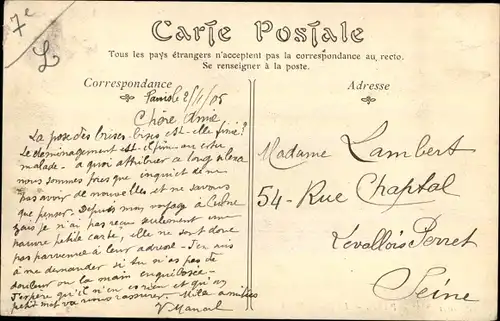 7e
L
Carte Postale
Tous les pays étrangers n'acceptent pas la correspondance au recto.
Se renseigner à la poste.
Correspondance
Adresse
Paris le 2/1/05
Chère Amie
La pose des brises-bises est-elle finie?
Le déménagement est-il fini ou
malade - a quoi attribuer ce long silence
nous sommes pres que inquiet de ne
pas avoir de nouvelles et ne savons
que penser. Depuis mon voyage à
je n'ai pas reçu seulement une
pauvre petite carte, elle ne sont donc
pas parvenue à leur adresse. J'en suis
à me demander si tu n'as pas de
douleur ou la main enquilosée -
J'espère qu'il n'en es rien et qu'un
petit mot va nous rassurer. Mille amitiés
V Manal
Madame Lambert
54 - Rue Chaptal
Levallois Perret
Seine